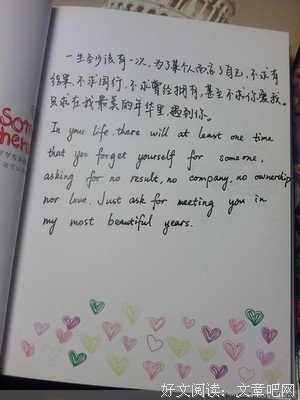 一生至少该有一次,为了某个人而忘了自己,不求有
结果,不求同行,不求曾经拥有,甚至不求你爱我。
只求在我最美的年华里,遇到你。
In your life, there will at least one time
that you forget yourself for someone,
asking for no result, no company, no ownership
nor love. Just ask for meeting you in
my most beautiful years.
好文阅读:文章吧网